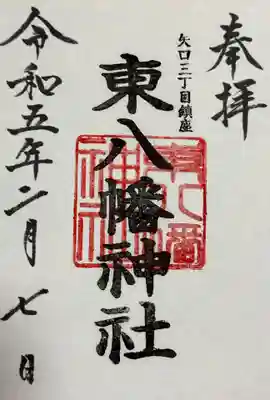 奉拝
矢口三丁目鎮座
東八幡神社
令和五年二月七日